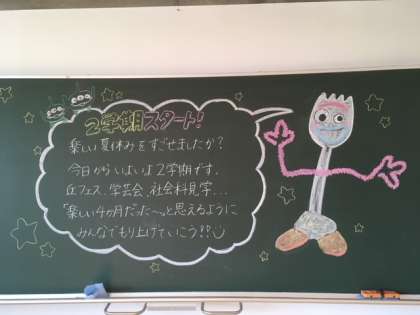 2学期スタート!
楽しい夏休みをすごせましたか?
今日からいよいよ2学期です。
丘フェス、学芸会、社会科見学...
「楽しい4か月だった〜」と思えるように
みんなでもり上げていこう!!